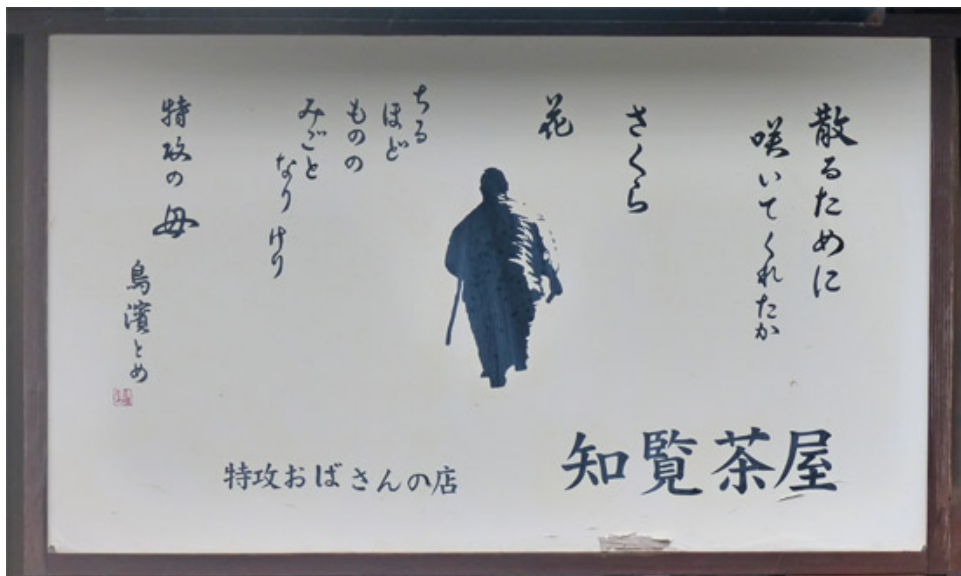 散るために
咲いてくれたか
さくら
花
ちる
ほど
ものの
みごと
なり けり
特攻の母
鳥濱とめ
知覧茶屋
特攻おばさんの店